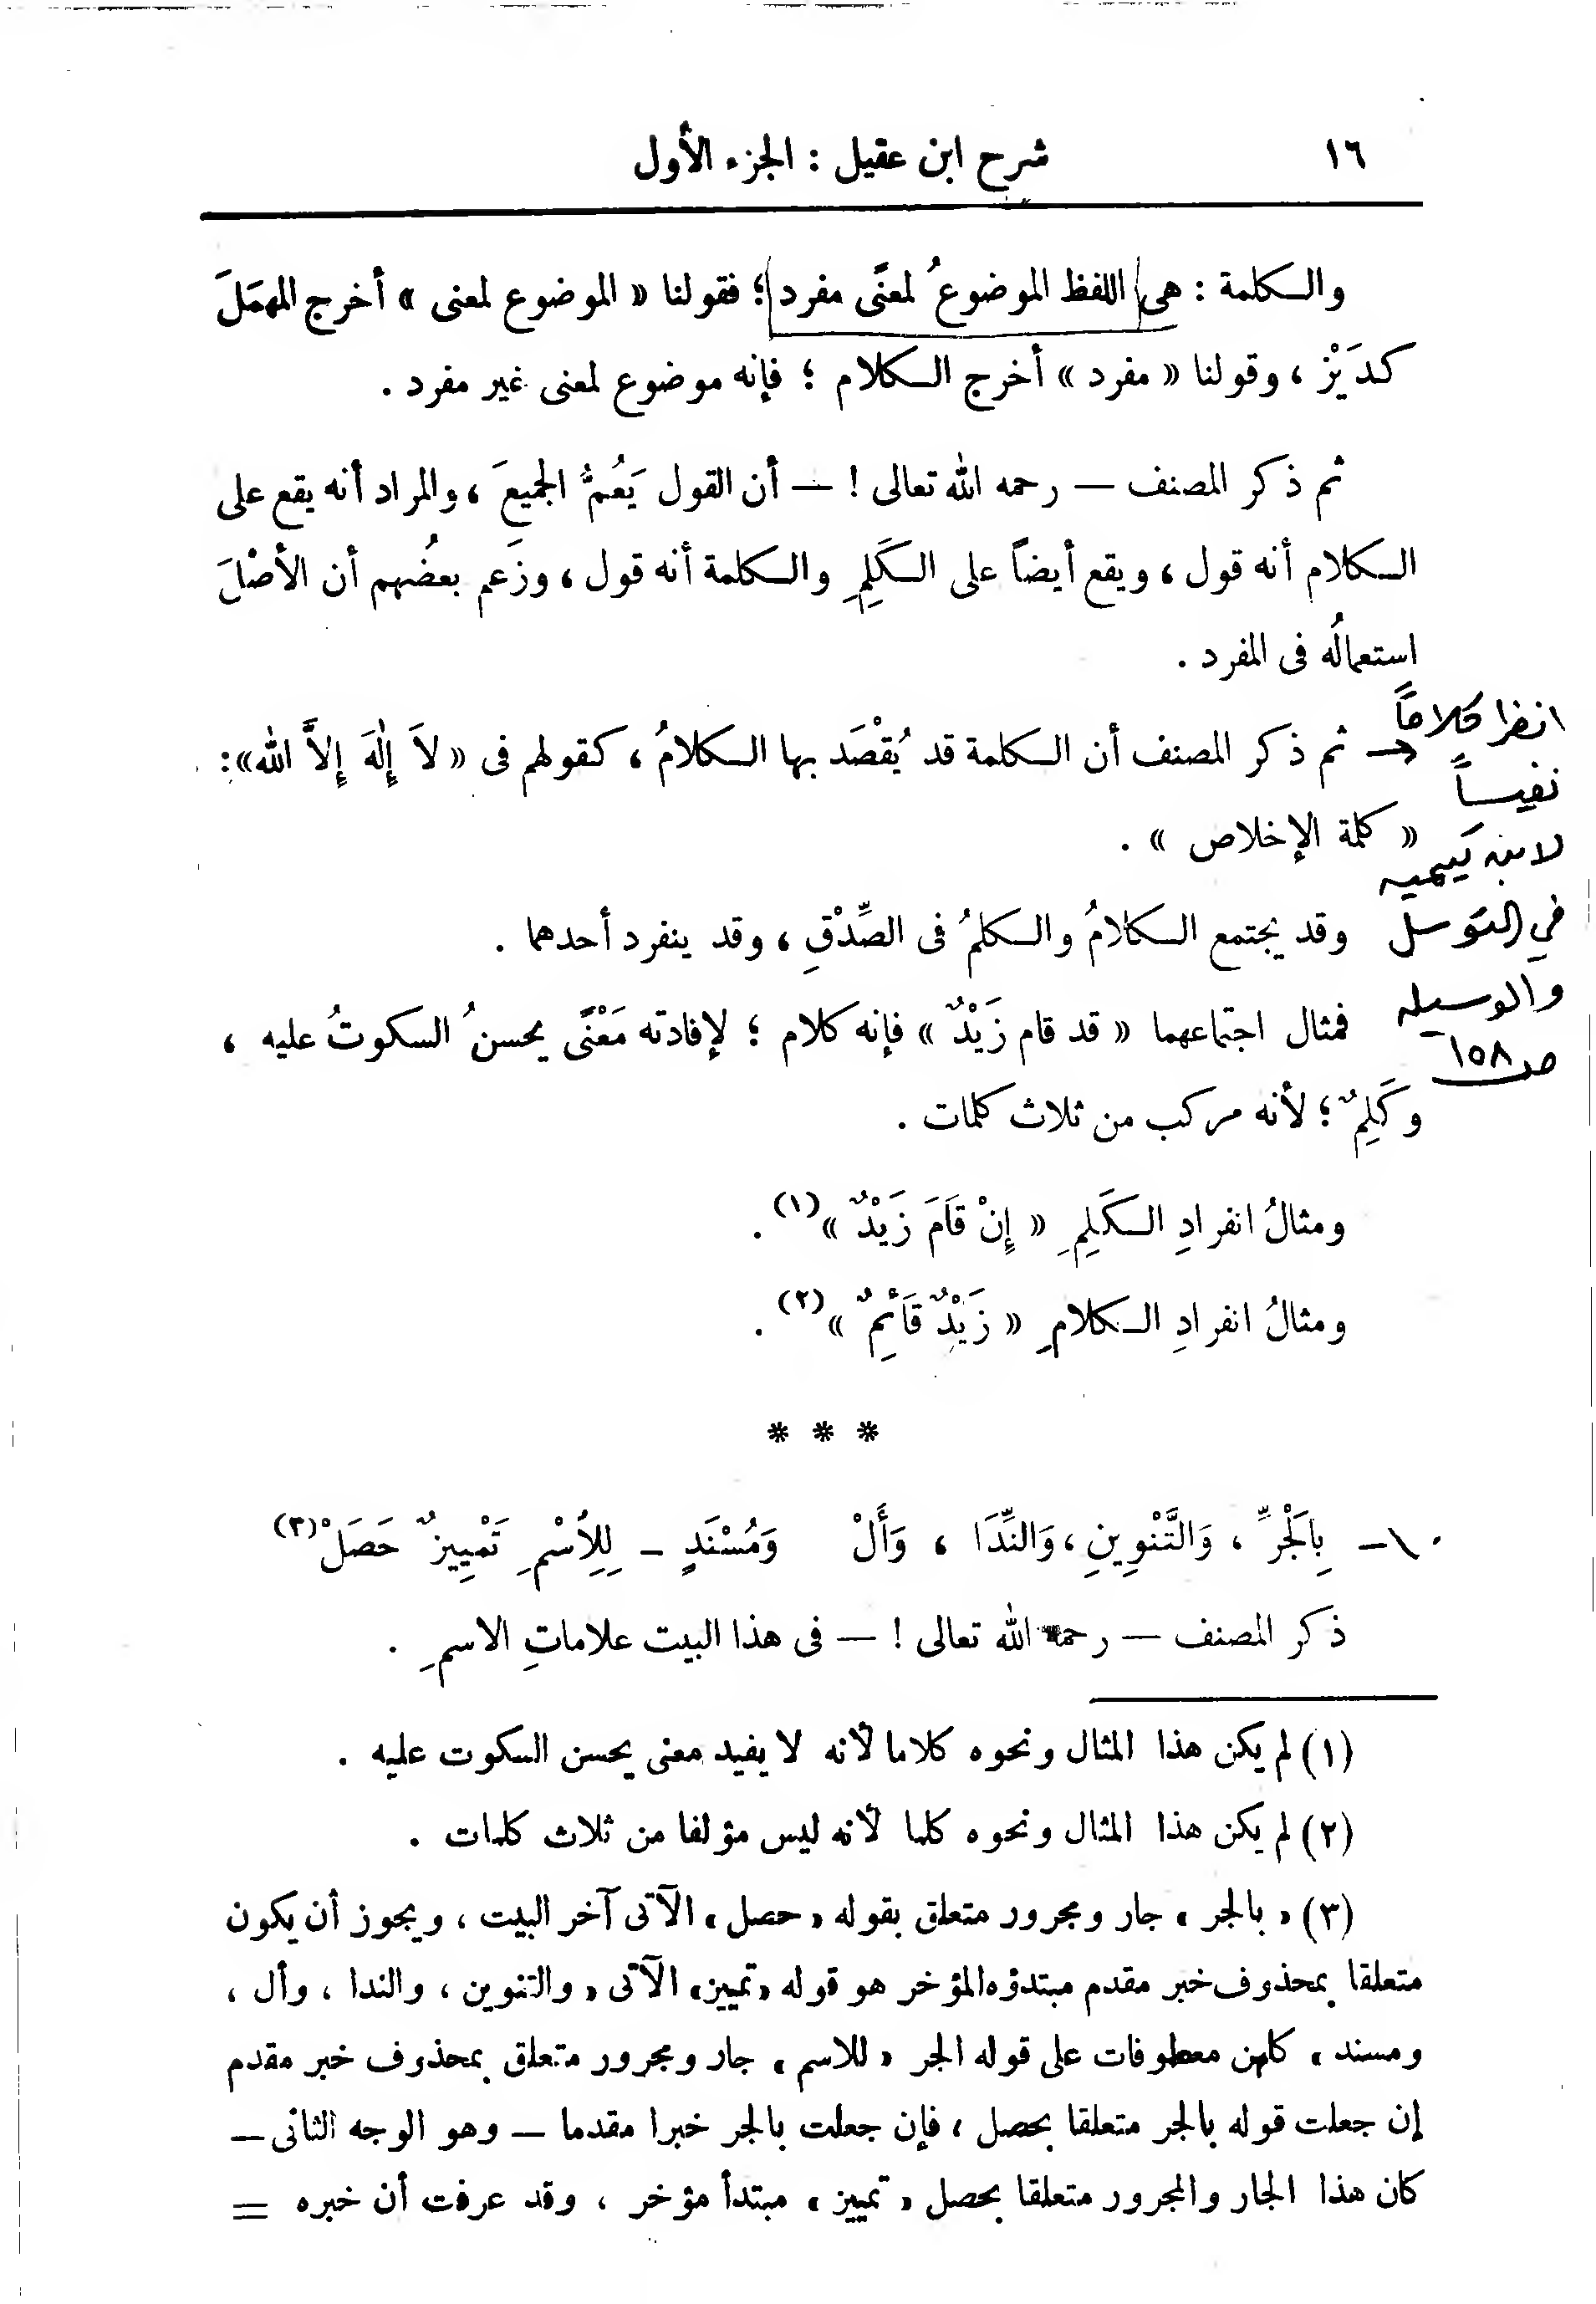 ١٦
شرح ابن عقيل : الجزء الأول
والكلمة : هى اللفظ الموضوعُ لمعنًى مفرد ؛ فقولنا « الموضوع لمعنى » أخرج المهمَلَ
كدَيْزٍ ، وقولنا « مفرد » أخرج الكلام ؛ فإنه موضوع لمعنى غير مفرد .
ثم ذكر المصنف — رحمه الله تعالى ! — أن القول يَعُمُّ الجميعَ ، والمراد أنه يقع على
الكلام أنه قول ، ويقع أيضاً على الكَلِمِ والكلمة أنه قول ، وزَعم بعضُهم أن الأصْلَ
استعمالُه فى المفرد .
ثم ذكر المصنف أن الكلمة قد يُقْصَد بها الكلامُ ، كقولهم فى « لاَ إِلٰهَ إِلاَّ الله» :
« كلمة الإخلاص » .
وقد يجتمع الكلامُ والكلمُ فى الصِّدْقِ ، وقد ينفرد أحدهما .
فمثال اجتماعهما « قد قام زَيْدٌ » فإنه كلام ؛ لإفادته مَعْنًى يحسنُ السكوتُ عليه ،
وكَلِمٌ ؛ لأنه مركب من ثلاث كلمات .
ومثالُ انفرادِ الكَلِمِ « إِنْ قَامَ زَيْدٌ » (١) .
ومثالُ انفرادِ الكلامِ « زَيْدٌ قَائِمٌ » (٢) .
* * *
١٠ – بِالْجَرِّ ، وَالتَّنْوِينِ ، وَالنِّدَا ، وَأَلْ وَمُسْنَدٍ – لِلِاسْمِ تَمْيِيزٌ حَصَلْ (٣)
ذكر المصنف — رحمه الله تعالى ! — فى هذا البيت علاماتِ الاسمِ .
(١) لم يكن هذا المثال ونحوه كلاما لأنه لا يفيد معنى يحسن السكوت عليه .
(٢) لم يكن هذا المثال ونحوه كلما لأنه ليس مؤلفا من ثلاث كلمات .
(٣) « بالجر » جار ومجرور متعلق بقوله « حصل » الآتى آخر البيت ، ويجوز أن يكون
متعلقا بمحذوف خبر مقدم مبتدؤه المؤخر هو قوله « تمييز » الآتى « والتنوين ، والندا ، وأل ،
ومسند » كلهن معطوفات على قوله الجر « للاسم » جار ومجرور متعلق بمحذوف خبر مقدم
إن جعلت قوله بالجر متعلقا بحصل ، فإن جعلت بالجر خبرا مقدما — وهو الوجه الثانى —
كان هذا الجار والمجرور متعلقا بحصل « تمييز » مبتدأ مؤخر ، وقد عرفت أن خبره =
انظر كلاماً
نفيساً
لابن تيمية
في التوسل
والوسيلة
ص ١٥٨